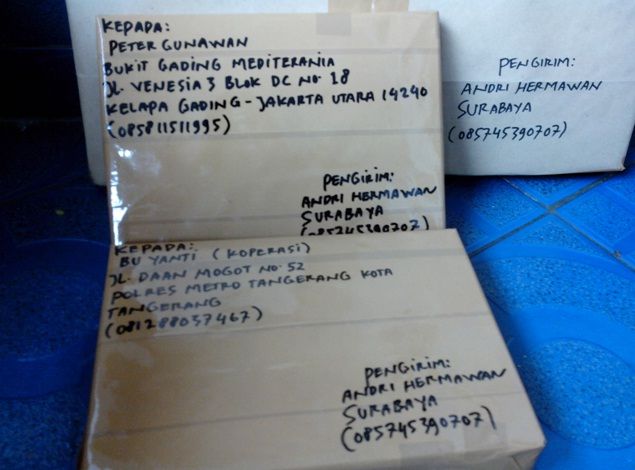 KEPADA:
PETER GUNAWAN
BUKIT GADING MEDITERANIA
JL. VENESIA 3 BLOK DC NO. 18
KELAPA GADING - JAKARTA UTARA 14240
(085811511995)
PENGIRIM:
ANDRI HERMAWAN
SURABAYA
(085745390707)
PENGIRIM:
ANDRI HERMAWAN
SURABAYA
(085745390707)
KEPADA:
BU YANTI (KOPERASI)
JL. DAAN MOGOT NO. 52
POLRES METRO TANGERANG KOTA
TANGERANG
(081288037467)
PENGIRIM:
ANDRI HERMAWAN
SURABAYA
(085745390707)